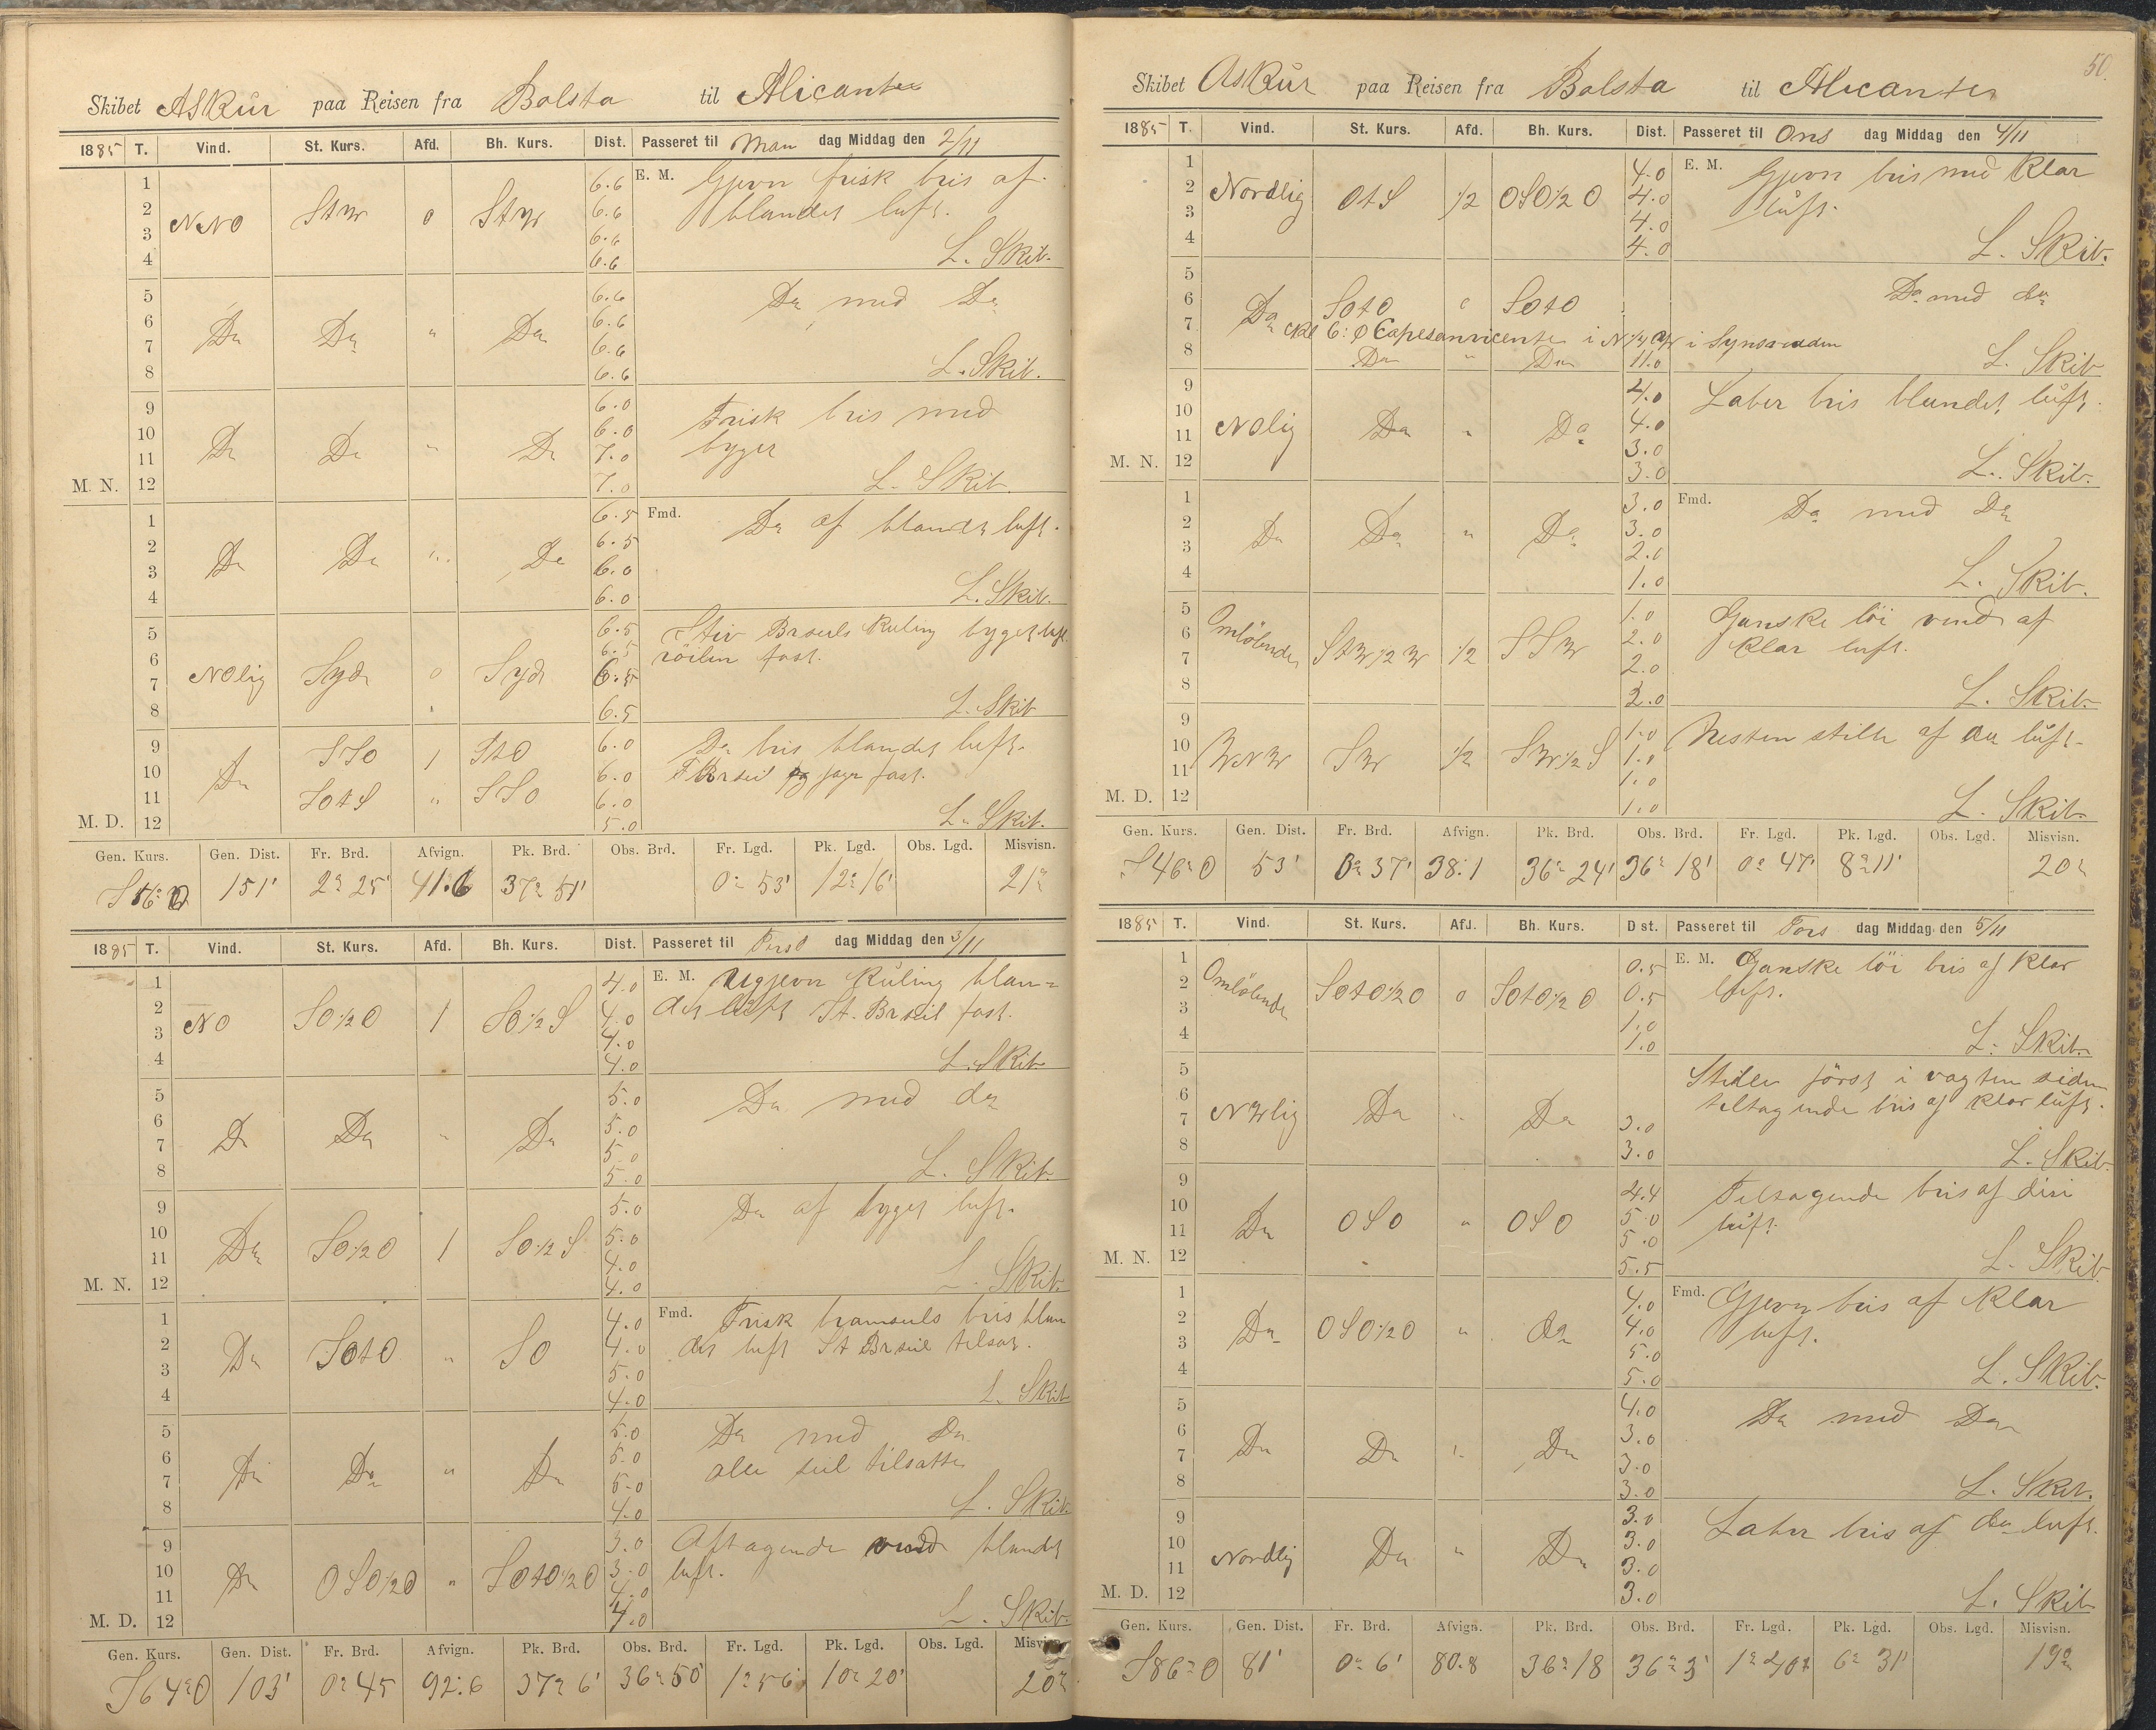 Skibet Askur paa Reisen fra Bolsta til Alicante
1885 T. Vind. St. Kurs. Afd. Bh. Kurs. Dist. Passeret til Man dag Middag den 2/11
E. M. Gjevn frisk bris af
blandet luft.
1 6.6
2 NNO StW 0 StW 6.6
3 6.6
4 6.6 L. Skib.
5 6.6 Do med Do
6 Do Do " Do 6.6
7 6.6
8 6.6 L. Skib.
9 6.0 Frisk bris med
10 Do Do " Do 6.0 byger
11 7.0
M. N. 12 7.0 L. Skib.
1 6.5 Fmd. Do af blandet luft.
2 Do Do " Do 6.5
3 6.0
4 6.0 L. Skib.
5 6.5 Stiv Brseils Kuling byget luft
6 NOlig Syd 0 Syd 6.5 röilen fast.
7 6.5
8 6.5 L. Skib
9 SSO 1 StO 6.0 Do bris blandet luft.
10 Do 6.0 og jager fast.
11 SOtS " SSO 6.0
M. D. 12 5.0 L. Skib.
Gen. Kurs. Gen. Dist. Fr. Brd. Afvign. Pk. Brd. Obs. Brd. Fr. Lgd. Pk. Lgd. Obs. Lgd. Misvisn.
151' 2° 25' 41.6 37° 51' 0° 53' 12° 16' 21°
1885 T. Vind. St. Kurs. Afd. Bh. Kurs. Dist. Passeret til Tirs dag Middag den 3/11
1 4.0 E. M. Ugjevn Kuling blan=
2 NO SO½O 1 SO½S 4.0 det luft St. Brseil fast.
3 4.0
4 4.0 L. Skib
5 5.0 Do med do
6 Do Do " Do 5.0
7 5.0
8 5.0 L. Skib.
9 5.0 Do af byget luft.
10 Do SO½O 1 SO½S 5.0
11 4.0
M. N. 12 4.0 L. Skib.
1 4.0 Fmd. Frisk bramseils bris blan
2 Do SOtO " SO 4.0 det luft St Brseil tilsat.
3 5.0
4 4.0 L. Skib
5 5.0 Do med Do
6 Do Do " Do 5.0 alle seil tilsatte
7 5.0
8 4.0 L. Skib.
9 3.0 Aftagende vind blandet
10 Do OSO½O " SOtO½O 3.0 luft.
11 4.0
M. D. 12 4.0 L. Skib.
Gen. Kurs. Gen. Dist. Fr. Brd. Afvign. Pk. Brd. Obs. Brd. Fr. Lgd. Pk. Lgd. Obs. Lgd. Misvisn.
S64°O 103' 0° 45 92.6 37° 6' 36° 50' 1° 56' 10° 20' 20°
50.
Skibet Askur paa Reisen fra Bolsta til Alicante
1885 T. Vind. St. Kurs. Afd. Bh. Kurs. Dist. Passeret til Ons dag Middag den 4/11
1 4.0 E. M. Gjevn bris med Klar
2 Nordlig OtS ½ OSO½O 4.0 luft.
3 4.0
4 4.0 L. Skib.
5 Do med do
6 Do SOtO 0 SOtO
7 Kl 6:0 Capesanvicente i i Synsranden
8 Do " Do 11.0 L. Skib
9 4.0 Laber bris blandet luft.
10 NOlig Do " Do 4.0
11 3.0
M. N. 12 3.0 L. Skib.
1 3.0 Fmd. Do med Do
2 Do Do " Do 3.0
3 2.0
4 1.0 L. Skib.
5 1.0 Ganske löi vind af
6 Omløbende StW½W ½ SSW 2.0 Klar luft.
7 2.0
8 2.0 L. Skib.
9 1.0 Nesten stille af do luft.
10 WNW SW ½ SW½S 1.0
11 1.0
M. D. 12 1.0 L. Skib.
Gen. Kurs. Gen. Dist. Fr. Brd. Afvign. Pk. Brd. Obs. Brd. Fr. Lgd. Pk. Lgd. Obs. Lgd. Misvisn.
S46°O 53' 0° 37' 38.1 36° 24' 36° 18' 0° 47' 8° 11' 20°
1885 T. Vind. St. Kurs. Afd. Bh. Kurs. Dist. Passeret til Tors dag Middag den 5/11
1 0.5 E. M. Ganske löi bris af Klar
2 Omløbende SOtO½O 0 SOtO½O 0.5 luft.
3 1.0
4 1.0 L. Skib.
5 Stille först i vagten siden
6 tiltagende bris af Klar luft.
7 NWlig Do " Do 3.0
8 3.0 L. Skib.
9 4.4 Tiltagende bris af disi
10 Do OSO " OSO 5.0 luft.
11 5.0
M. N. 12 5.5 L. Skib
1 4.0 Fmd. Gjevn bris af Klar
2 Do OSO½O " do 4.0 luft.
3 5.0
4 5.0 L. Skib.
5 4.0 Do med Do
6 Do Do " Do 3.0
7 3.0
8 3.0 L. Skib.
9 3.0 Laber bris af do luft.
10 Nordlig Do " Do 3.0
11 3.0
M. D. 12 3.0 L. Skib
Gen. Kurs. Gen. Dist. Fr. Brd. Afvign. Pk. Brd. Obs. Brd. Fr. Lgd. Pk. Lgd. Obs. Lgd. Misvisn.
S86°O 81' 0° 6' 80.8 36° 18 36° 3' 1° 40' 6° 31' 19°